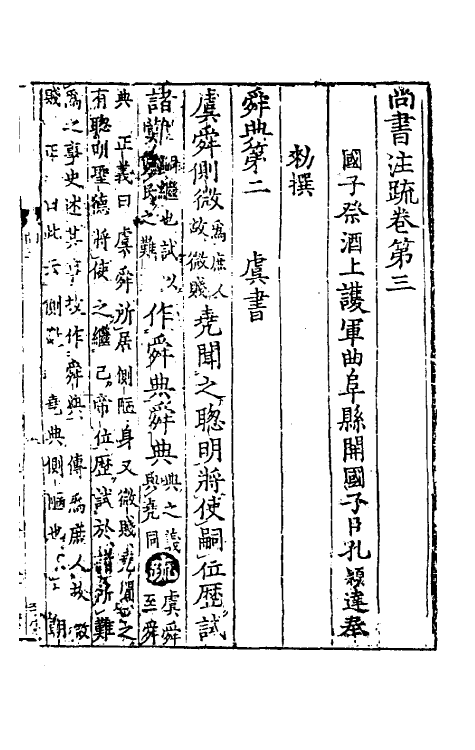 尚書注疏卷第三
國子祭酒上護軍曲阜縣開國子臣孔穎達奉
勑撰
舜典第二　虞書
虞舜側微為庶人故微賤堯聞之聰明將使嗣位歷試
諸難嗣繼也試以治民之難作舜典舜典典之義與堯同疏虞舜至舜
典　正義曰虞舜所居側陋身又微賤堯聞之
有聰明聖德將使之繼己帝位歷試於諸所難
為之事史述其事故作舜典　傳為庶人故微
賤　正曰此云側　堯典側陋也